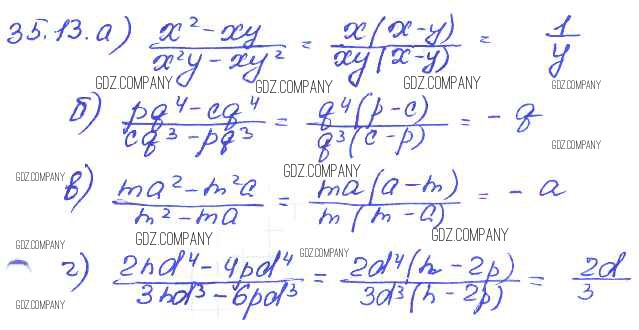 35.13. а) x² - xy / x²y - xy² = x(x-y) / xy(x-y) = 1 / y
GDZ.COMPANY GDZ.COMPANY GDZ.COMPANY GDZ.COMPANY
б) pq⁴ - cq⁴ / cq³ - pq³ = q⁴(p-c) / q³(c-p) = - q
GDZ.COMPANY
GDZ.COMPANY GDZ.COMPANY
в) ma² - m²a / m² - ma = ma(a-m) / m(m-a) = - a
GDZ.COMPANY GDZ.COMPANY GDZ.COMPANY GDZ.COMPANY
г) 2hd⁴ - 4pd⁴ / 3hd³ - 6pd³ = 2d⁴(h-2p) / 3d³(h-2p) = 2d / 3
GDZ.COMPANY